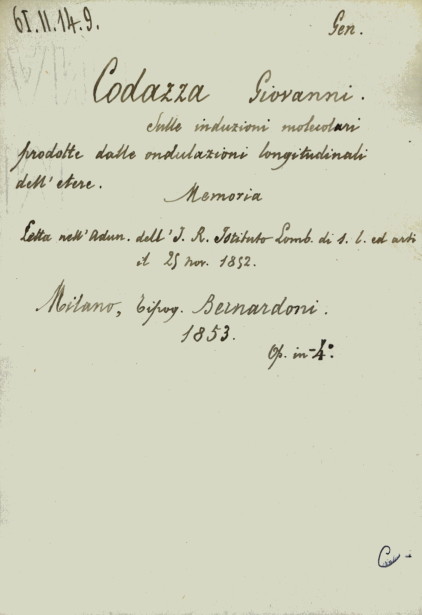 61.II.14.9.
Gen.
Codazza Giovanni.
Sulle induzioni molecolari
prodotte dalle ondulazioni longitudinali
dell'etere.
Memoria
Letta nell'Adun. dell'I. R. Istituto Lomb. di s. l. ed arti
il 25 nov. 1852.
Milano, Tipog. Bernardoni.
1853.
Op. in-4º.